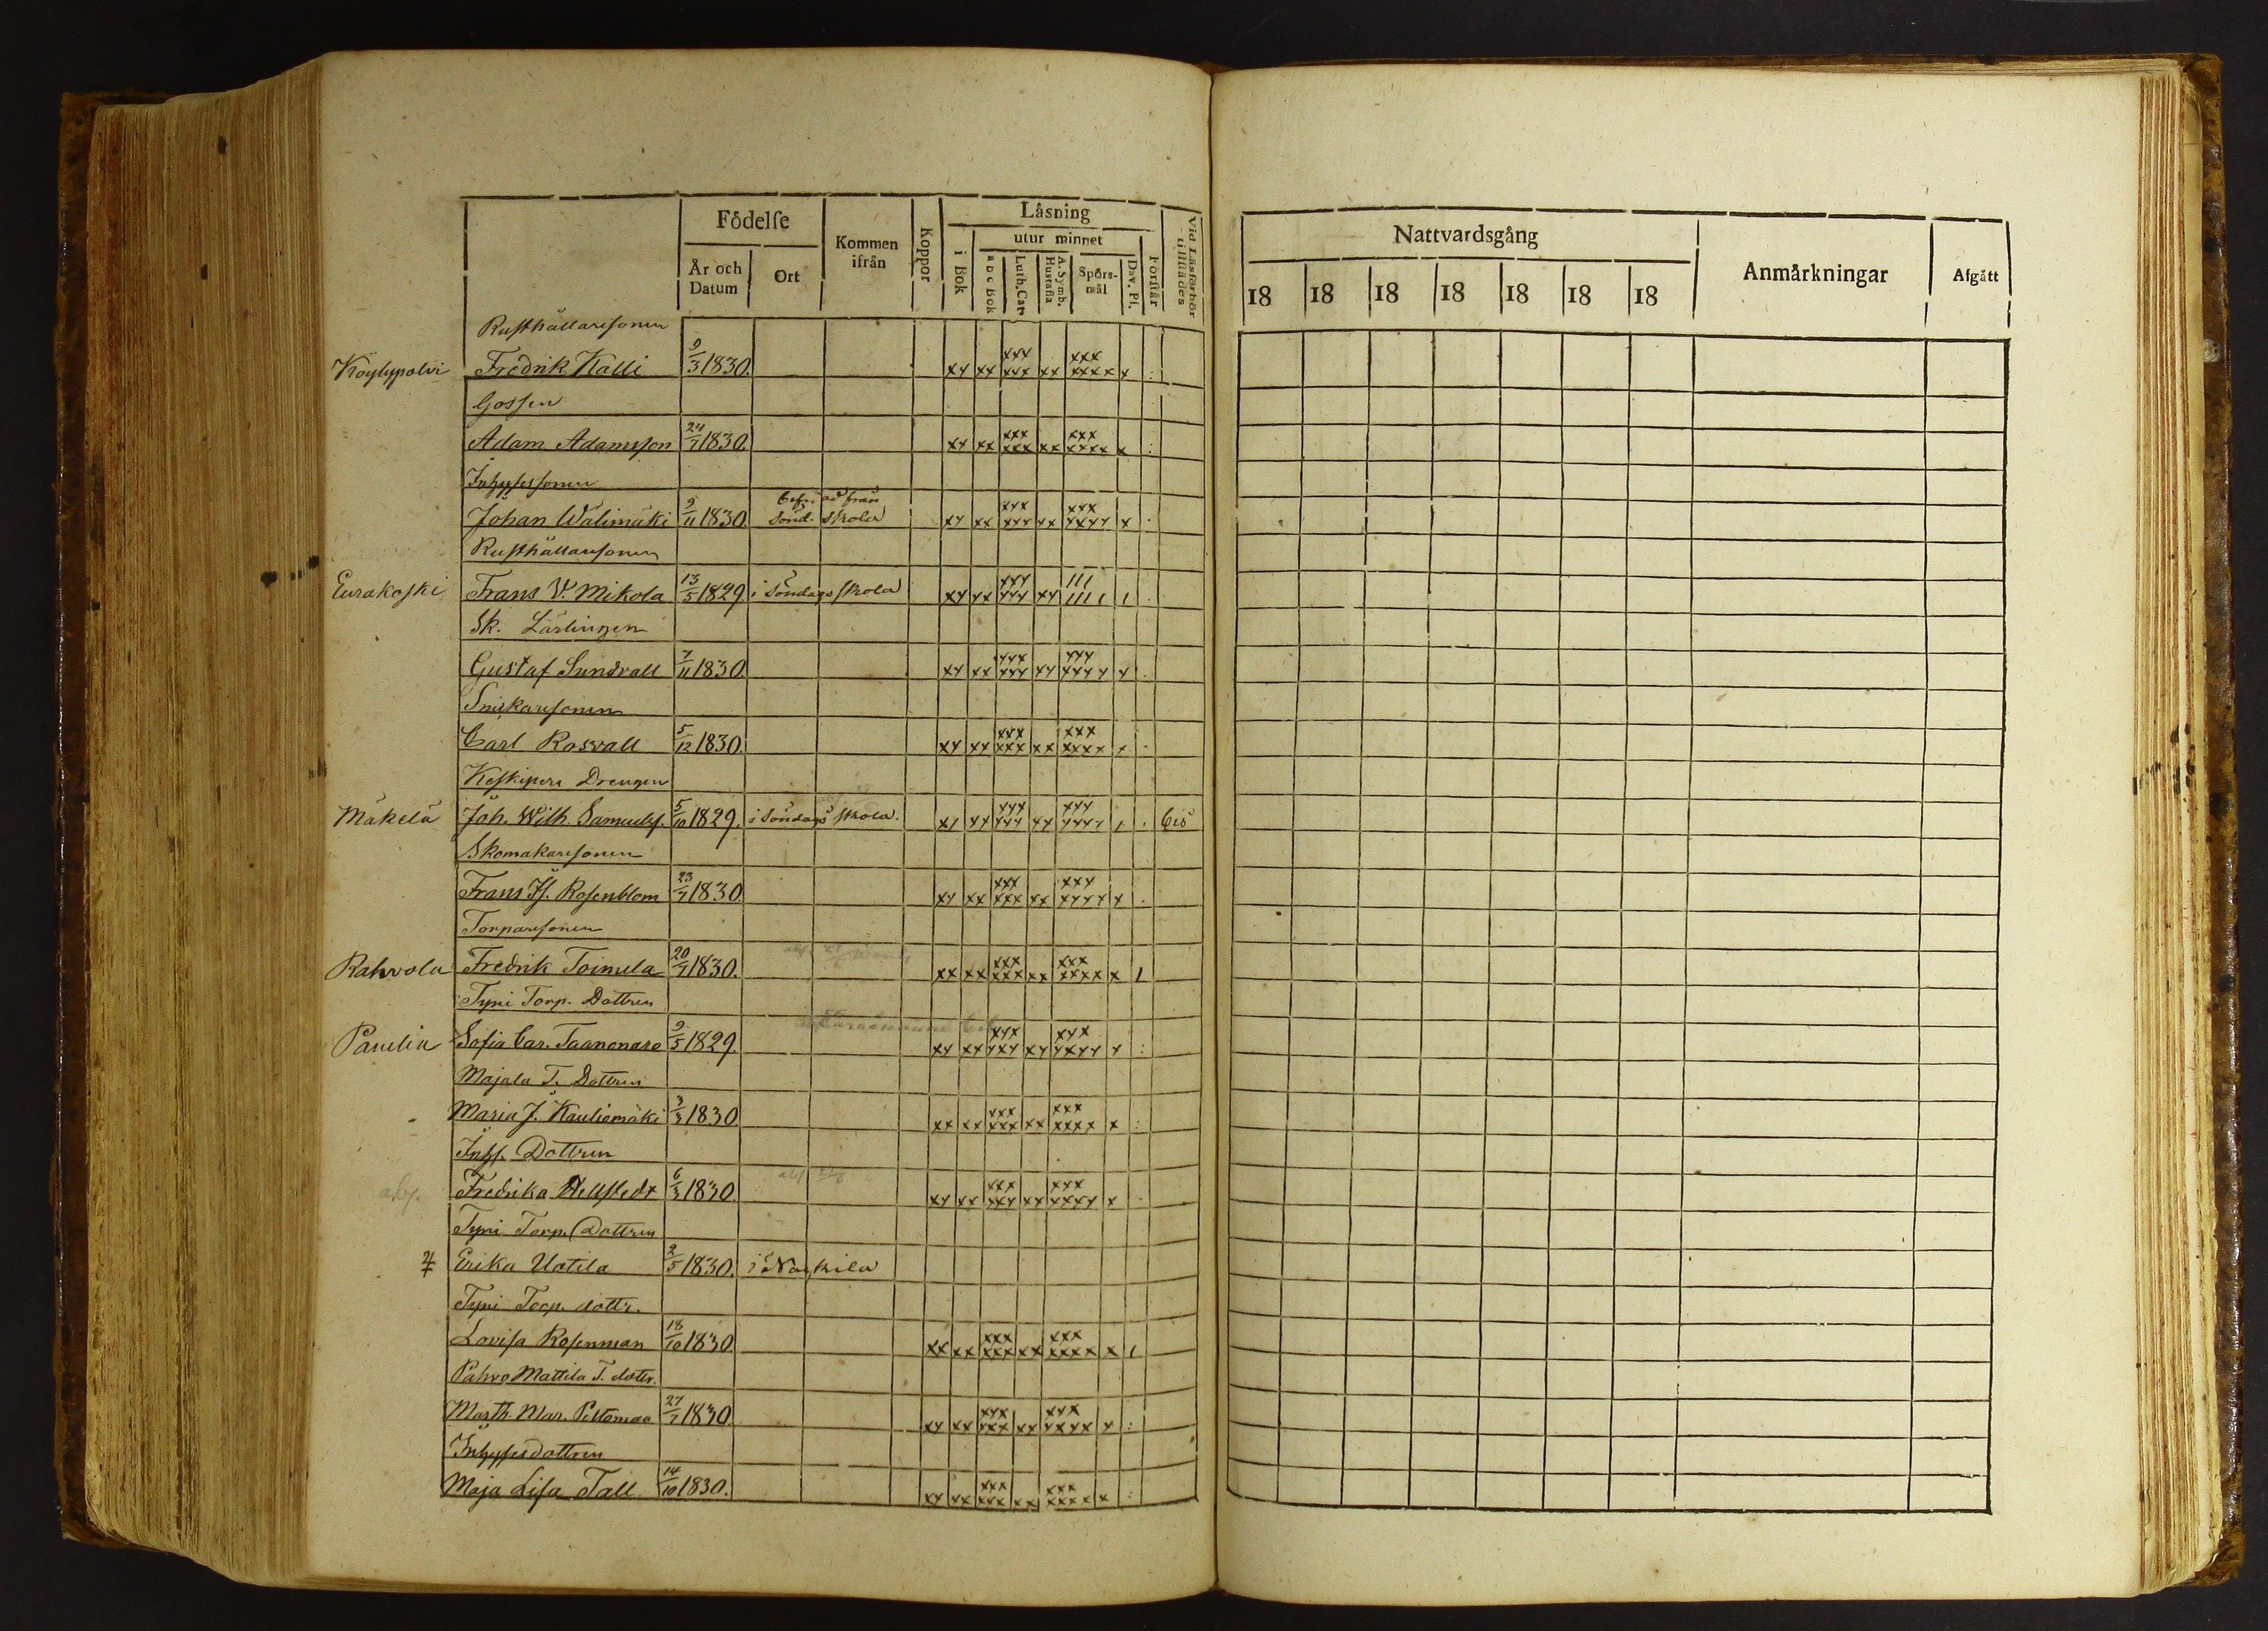 Födelse
Kommen ifrån
Koppor
Låsning
Vid Läsförhör tillstädes
År och Datum
Ort
i Bok
utur minnet
Förstår
a b c Bok
Luth. Cat.
A. Symb. Hustafla
Spörs-mål
Dav. Ps.
Nattvardsgång
Anmårkningar
Afgått
18 18 18 18 18 18 18
Rusthållaresonen
Köylypolvi Fredrik Kalli 9/3 1830. xx xx xxx xxx xx xxx xxxx x :
Gossen
Adam Adamsson 24/7 1830. xx xx xxx xxx xx xxx xxxx x :
Inhyssessonen
Johan Wälimäki 9/11 1830 från sönd. skola xx xx xxx xxx xx xxx xxxx x .
Rusthållaresonen
Eurakoski Frans V. Mikola 13/5 1829 i söndags skola xx xx xxx xxx xx ııı ıııı ı .
Sk. Lärlingen
Gustaf Sundvall 7/11 1830 xx xx xxx xxx xx xxx xxxx x .
Snickaresonen
Carl Rosvall 5/12 1830. xx xx xxx xxx xx xxx xxxx x .
Keskipere Drengen
Mäkelä Joh. Wilh. Samuels. 5/10 1829. i söndags skola. xx xx xxx xxx xx xxx xxxx ı . bis
Skomakaresonen
Frans Fr. Rosenblom 23/7 1830 xx xx xxx xxx xx xxx xxxx x .
Torparesonen
Rahvola Fredrik Toimela 20/7 1830. xx xx xxx xxx xx xxx xxxx x ı
Typi Torp. Dottren
Panelia Sofia Car. Taanonaro 9/5 1829. xx xx xxx xxx xx xxx xxxx x :
Majala T. Dottren
Maria J. Kauliomäki 3/3 1830 xx xx xxx xxx xx xxx xxxx x :
Inhs. Dottren
abs. Fredrika Hellstedt 6/3 1830. xx xx xxx xxx xx xxx xxxx x .
Typi Torp. Dottren
Erika Uotila 2/5 1830. i Nackila
Typi Torp. dottr.
Lovisa Rosenman 18/10 1830 xx xx xxx xxx xx xxx xxxx x ı
Pahvo Mattila T. dottr.
Marth. Mar. Peltomaa 27/7 1830. xx xx xxx xxx xx xxx xxxx x :
Inhysesdottren
Maja Lisa Tall 14/10 1830. xx xx xxx xxx xx xxx xxxx x :